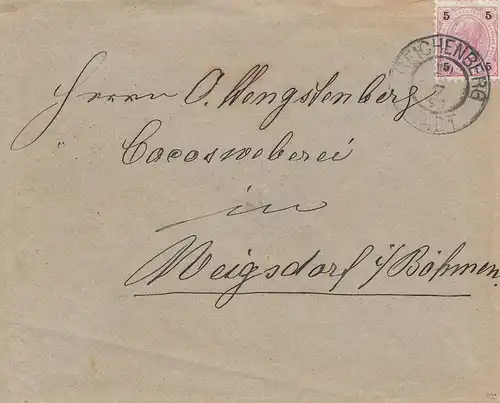 5 5
5 5
REICHENBERG
STADT
Herrn O. Hengstenberg
Cocosweberei
in
Weigsdorf i/Böhmen